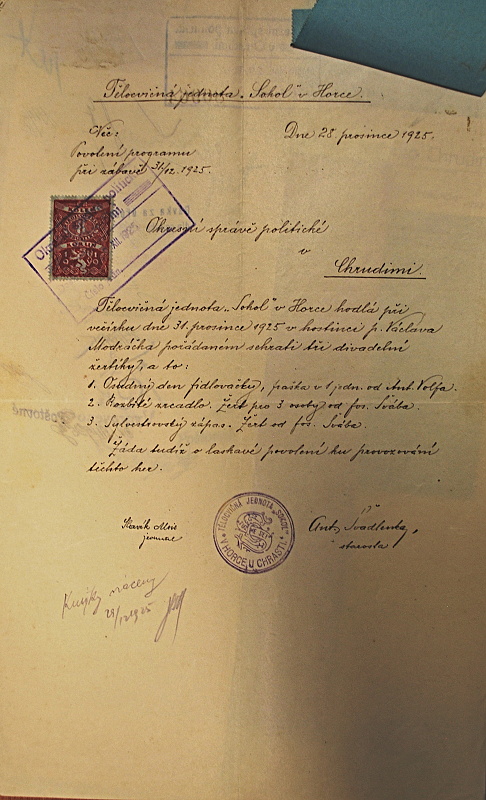 Tělocvičná jednota „Sokol" v Horce.
Věc: Dne 28. prosince 1925.
Povolení programu
při zábavě 31/12.1925.
Okresní správě politické
v
Chrudimi.
Tělocvičná jednota „Sokol" v Horce hodlá při
večírku dne 31. prosince 1925 v hostinci p. Václava
Modráčka pořádaném sehrati tři divadelní
žertíky, a to:
1. Osudný den fidlovačky, fraška v 1 jedn. od Ant. Volfa.
2. Rozbité zrcadlo. Žert pro 3 osoby od Jos. Švába.
3. Sylvestrovský zápas. Žert od Jos. Švába.
Žádá tudíž o laskavé povolení ku provozování
těchto her.
jednatel
Ant. Švadlenka,
starosta
TĚLOCVIČNÁ JEDNOTA „SOKOL"
V HORCE U CHRASTI.
vráceny
28/12 1925